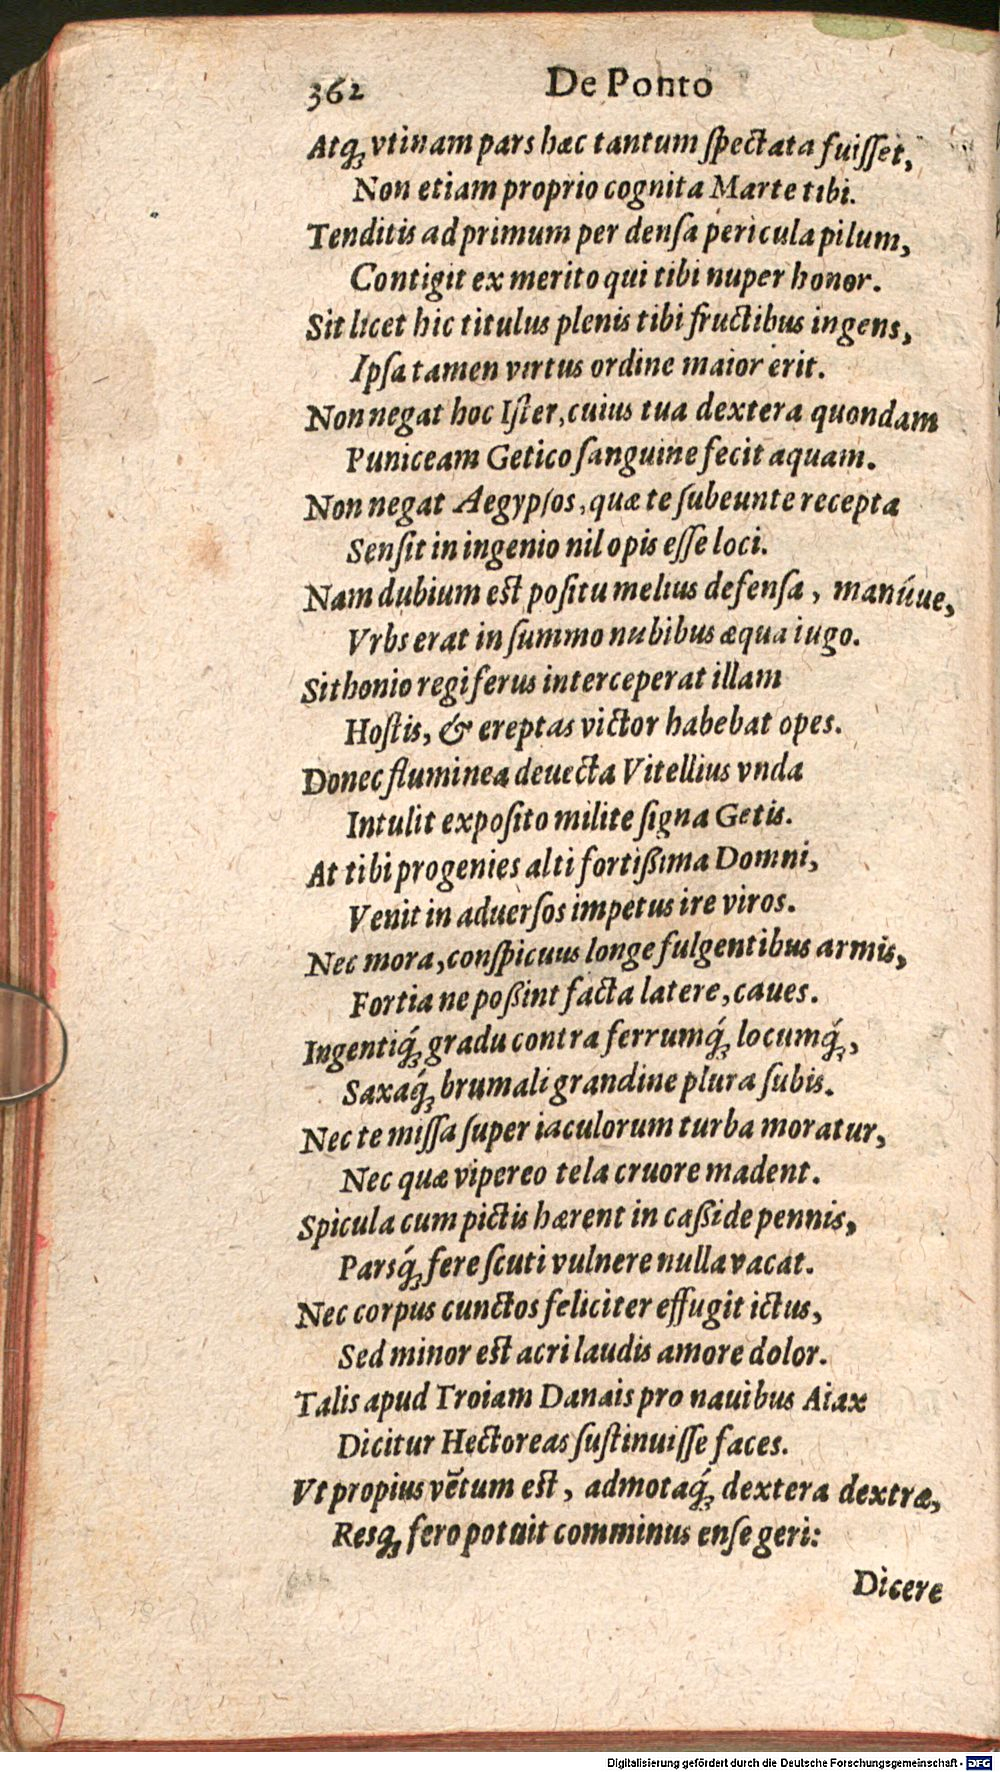 362 De Ponto
Atq́ꝫ vtinam pars hæc tantum ſpectata fuiſſet,
Non etiam proprio cognita Marte tibi.
Tenditis ad primum per denſa pericula pilum,
Contigit ex merito qui tibi nuper honor.
Sit licet hic titulus plenis tibi fructibus ingens,
Ipſa tamen virtus ordine maior erit.
Non negat hoc Iſter, cuius tua dextera quondam
Puniceam Getico ſanguine fecit aquam.
Non negat Aegypſos, quæ te ſubeunte recepta
Senſit in ingenio nil opis eſſe loci.
Nam dubium est poſitu melius defenſa, manúue,
Vrbs erat in ſummo nubibus æqua iugo.
Sithonio regi ferus interceperat illam
Hoſtis, & ereptas victor habebat opes.
Donec fluminea deuecta Vitellius vnda
Intulit expoſito milite ſigna Getis.
At tibi progenies alti fortißima Domni,
Venit in aduerſos impetus ire viros.
Nec mora, conſpicuus longe fulgentibus armis,
Fortia ne poßint facta latere, caues.
Ingentiq́ꝫ gradu contra ferrumq́ꝫ locumq́ꝫ,
Saxaq́ꝫ brumali grandine plura ſubis.
Nec te miſſa ſuper iaculorum turba moratur,
Nec quæ vipereo tela cruore madent.
Spicula cum pictis hærent in caßide pennis,
Parsq́ꝫ fere ſcuti vulnere nulla vacat.
Nec corpus cunctos feliciter effugit ictus,
Sed minor est acri laudis amore dolor.
Talis apud Troiam Danais pro nauibus Aiax
Dicitur Hectoreas ſuſtinuiſſe faces.
Vt propius vẽtum est, admotaq́ꝫ dextera dextræ,
Resqꝫ fero potuit comminus enſe geri:
Dicere
Digitalisierung gefördert durch die Deutsche Forschungsgemeinschaft - DFG